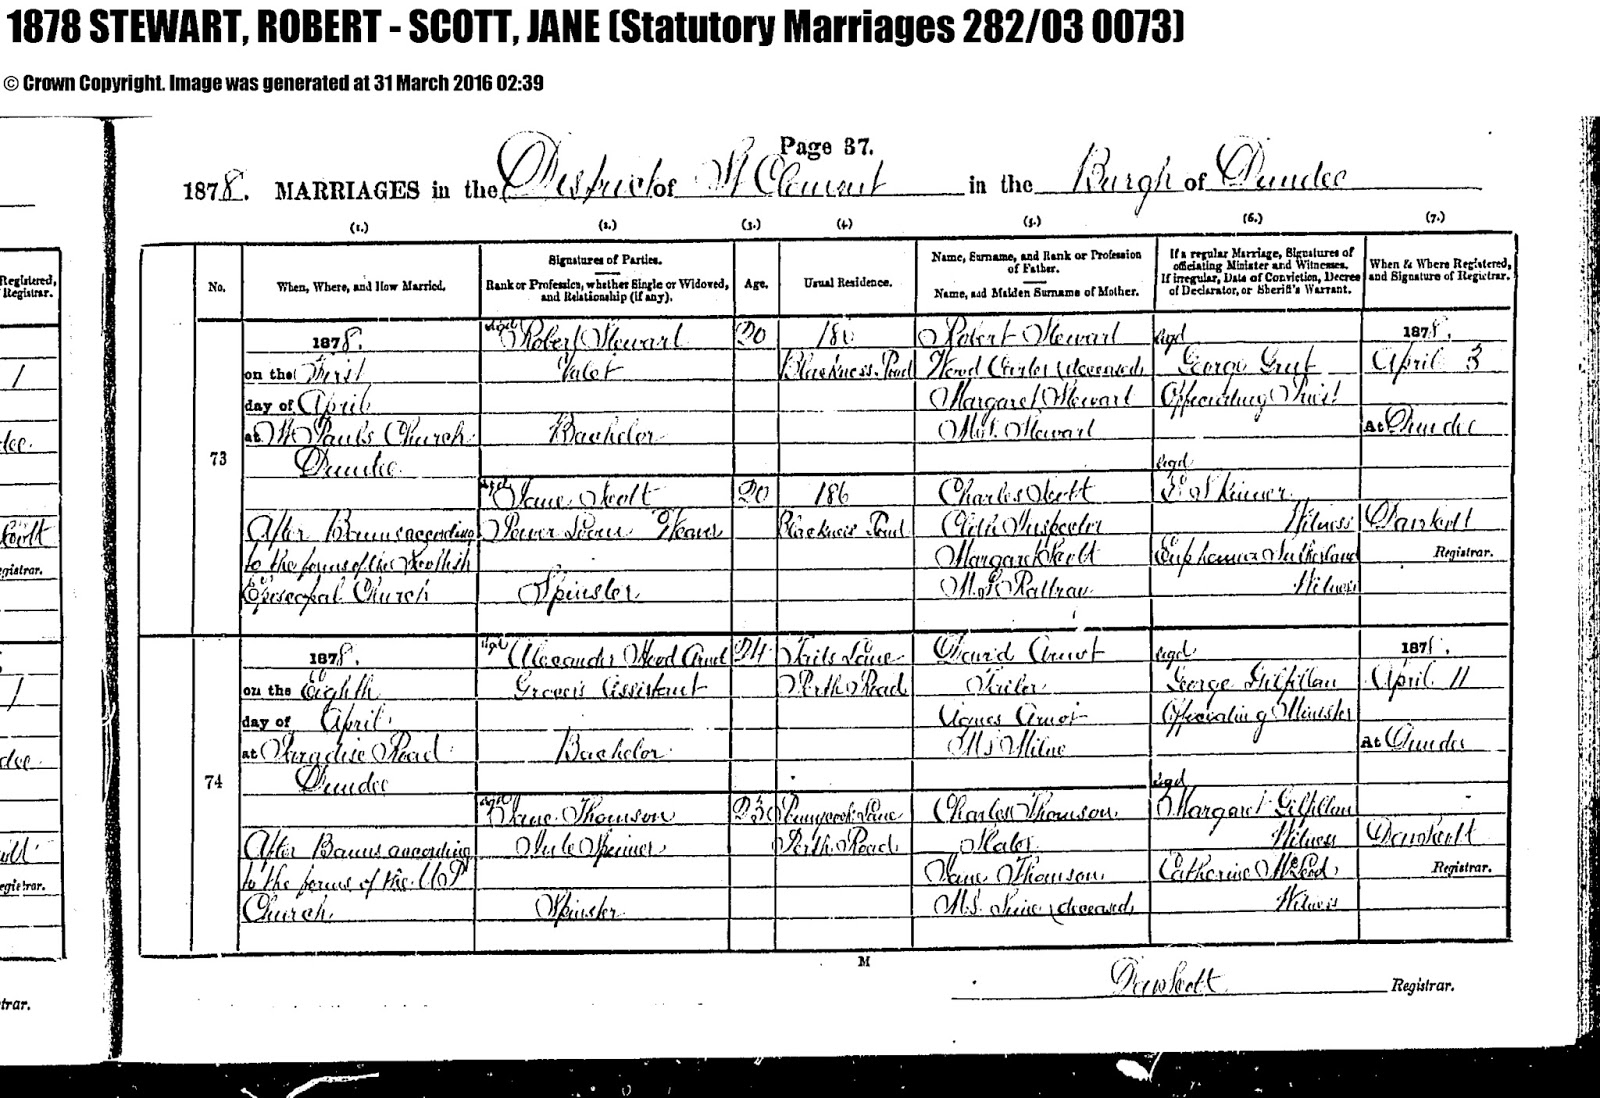 1878 STEWART, ROBERT - SCOTT, JANE (Statutory Marriages 282/03 0073)
© Crown Copyright. Image was generated at 31 March 2016 02:39
Page 37.
1878. MARRIAGES in the District of St Clement in the Burgh of Dundee
(1.) (2.) (3.) (4.) (5.) (6.) (7.)
No.
When, Where, and How Married.
Signatures of Parties.
Rank or Profession, whether Single or Widowed,
and Relationship (if any).
Age.
Usual Residence.
Name, Surname, and Rank or Profession
of Father.
Name, and Maiden Surname of Mother.
If a regular Marriage, Signatures of
officiating Minister and Witnesses.
If irregular, Date of Conviction, Decree
of Declarator, or Sheriff's Warrant.
When & Where Registered,
and Signature of Registrar.
Registered,
Registrar.
73
1878.
on the First
day of April
at St Pauls Church
Dundee
After Banns according
to the forms of the Scottish
Episcopal Church
sigd Robert Stewart
Valet
Bachelor
sigd Jane Scott
Power Loom
Spinster
20
20
Blackness Road
186
Blackness Road
Robert Stewart
(deceased)
Margaret Stewart
M.S. Stewart
Charles Scott
Cloth Inspector
Margaret Scott
M.S. Rattray
sigd
George
Officiating Priest
sigd
Skinner
Witness
Euphemia Sutherland
Witness
1878.
April 3
At Dundee
Registrar.
74
1878.
on the Eighth
day of April
at Paradise Road
Dundee
After Banns according
to the forms of the U P
Church
sigd Alexander
Grocer's Assistant
Bachelor
sigd Jane Thomson
Jute Spinner
Spinster
24
Lane
Perth Road
Pennycook Lane
Perth Road
David Arnot
Agnes Arnot
M.S. Milne
Charles Thomson
Slater
Jane Thomson
M.S. (deceased)
sigd
George Gilfillan
Officiating Minister
sigd
Margaret Gilfillan
Witness
Catherine McLeod
Witness
1878.
April 11
At Dundee
Registrar.
M
Registrar.